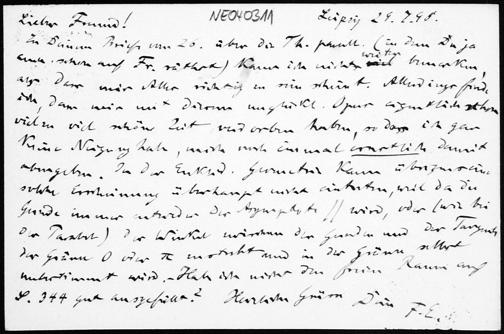 NE040311
Lieber Freund! Leipzig 29. 7. 98.
In Deinem Briefe vom 26. über die Th. parall. (in dem Du ja
auch schon auf Fr. ) kann ich nichts weiter bemerken,
als dass mir Alles richtig zu sein scheint. Allerdings finde
ich, dass wir mit diesem Opus eigentlich schon
vielen viel schöne Zeit verdorben haben, so dass ich gar
keine Neigung habe, mich noch einmal ernstlich damit
abzugeben. In der Euklid. Geometrie kann übrigens eine
solche Erscheinung überhaupt nicht eintreten, weil da die
Gerade immer entweder der Asymptote // wird, oder (wie bei
der Parabel) der Winkel zwischen der Geraden und der Tangente
der Gränze 0 oder π zustrebt und in der Gränze selbst
unbestimmt wird. Hab ich nicht den freien Raum auf
S. 344 gut ausgefüllt? Herzliche Grüsse Dein F. E.